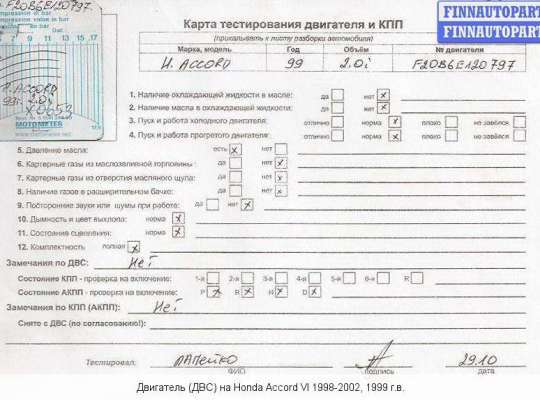 F20B6E120797
compression in bar
compression value in bar
8 9 11 13 15 17
H. ACCORD
99г. 2.0i
MOTOMETER
FINNAUTOPART
FINNAUTOPART
Карта тестирования двигателя и КПП
(прикалывать к листу разборки автомобиля)
Марка, модель Год Объём № двигателя
H. ACCORD 99 2.0i F20B6E120797
1. Наличие охлаждающей жидкости в масле: да нет x
2. Наличие масла в охлаждающей жидкости: да нет x
3. Пуск и работа холодного двигателя: отлично норма x плохо не завёлся
4. Пуск и работа прогретого двигателя: отлично норма x плохо не завёлся
5. Давление масла: есть x нет
6. Картерные газы из маслозаливной горловины: да нет x
7. Картерные газы из отверстия масляного щупа: да нет x
8. Наличие газов в расширительном бачке: да нет x
9. Посторонние звуки или шумы при работе: да нет x
10. Дымность и цвет выхлопа: норма x
11. Состояние сцепления: норма x
12. Комплектность полная x
Замечания по ДВС: Нет
Состояние КПП - проверка на включение: 1-я 2-я 3-я 4-я 5-я 6-я R
Состояние АКПП - проверка на включение: P x R x N x D x
Замечания по КПП (АКПП): Нет
Снято с ДВС (по согласованию!):
Тестировал: ЛАПЕЙКО 29.10
ФИО подпись дата
Двигатель (ДВС) на Honda Accord VI 1998-2002, 1999 г.в.